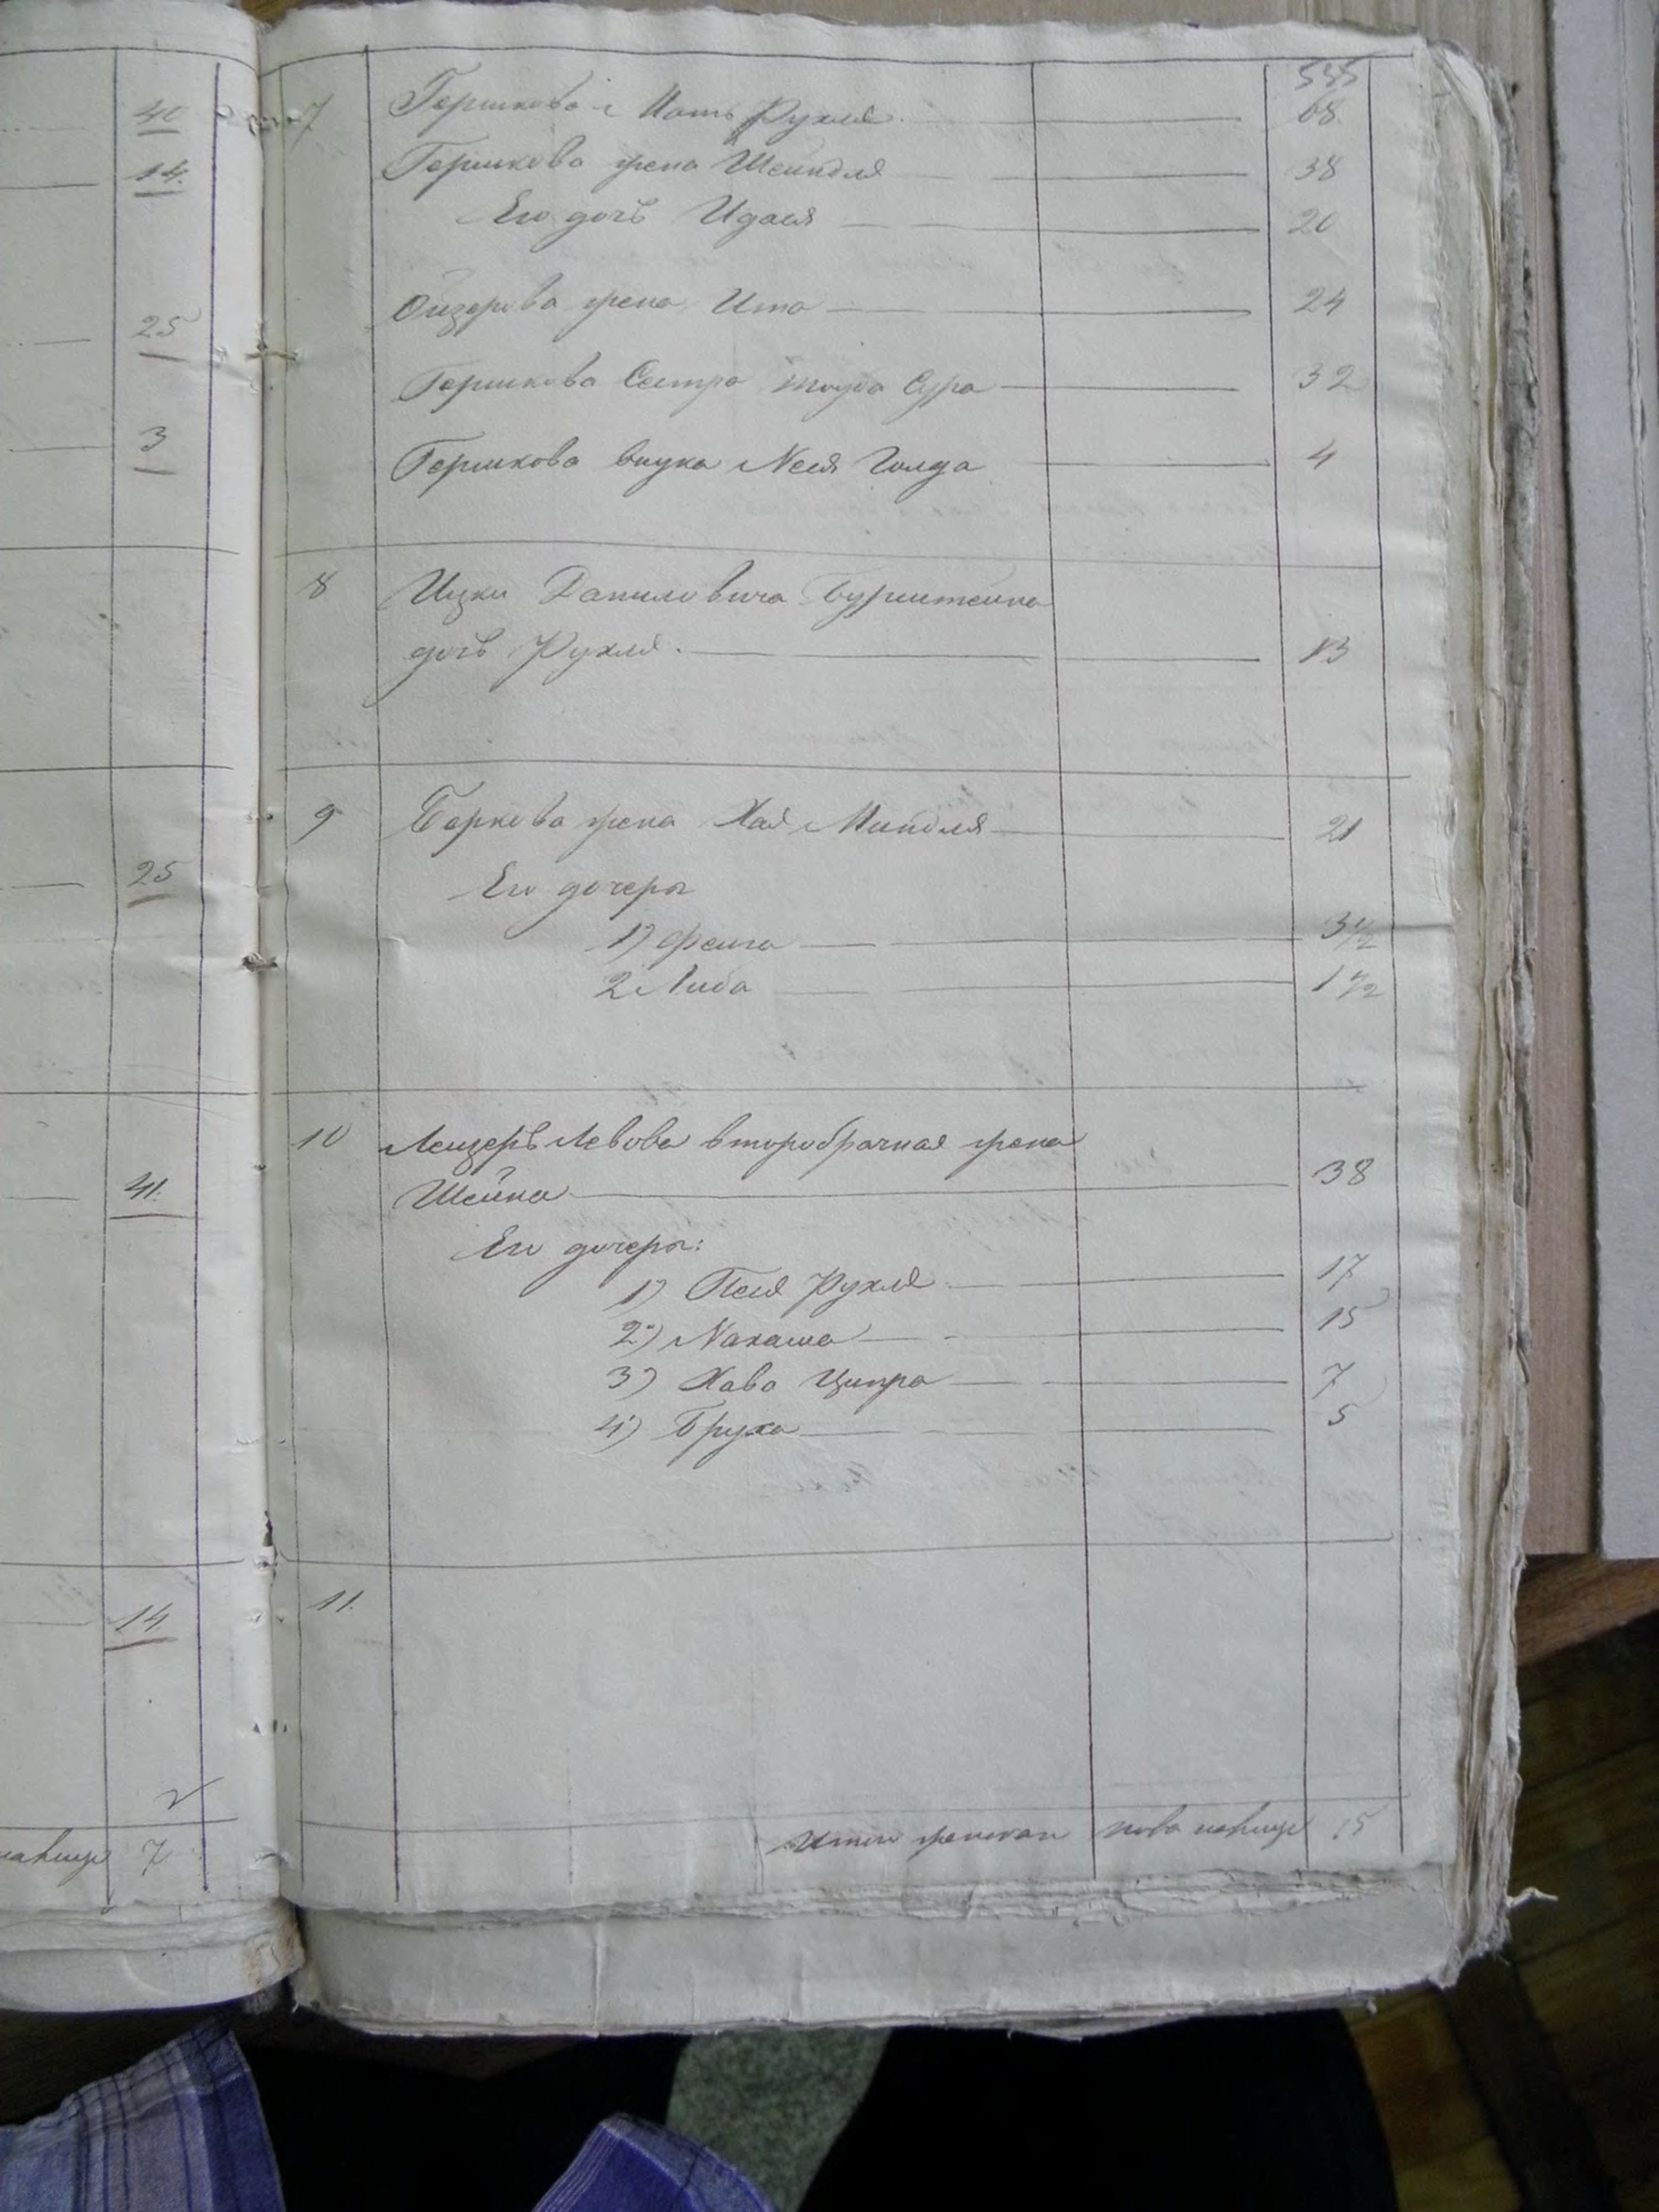 40
14.
25
3
25
41.
14.
7
535
7 Гершкова Мать Рухля. 68
Гершкова жена Шейндля 38
Его дочь Идася 20
Ойзерова жена Ита 24
Гершкова Сестра Тауба Сура 32
Гершкова внука Неся Голда 4
8 Ицки Даниловича Бурштейна
дочь Рухля. 13
9 Беркова жена Хая Миндля 21
Его дочери
1) Фейга 3 1/2
2 Либа 1 1/2
10 Лейзеръ Левова второбрачная жена
Шейна 38
Его дочери:
1) Песя Рухля 17
2) Нахама 15
3) Хава Ципра 7
4) Бруха 5
11.
Итого женскаго пола налицо 15